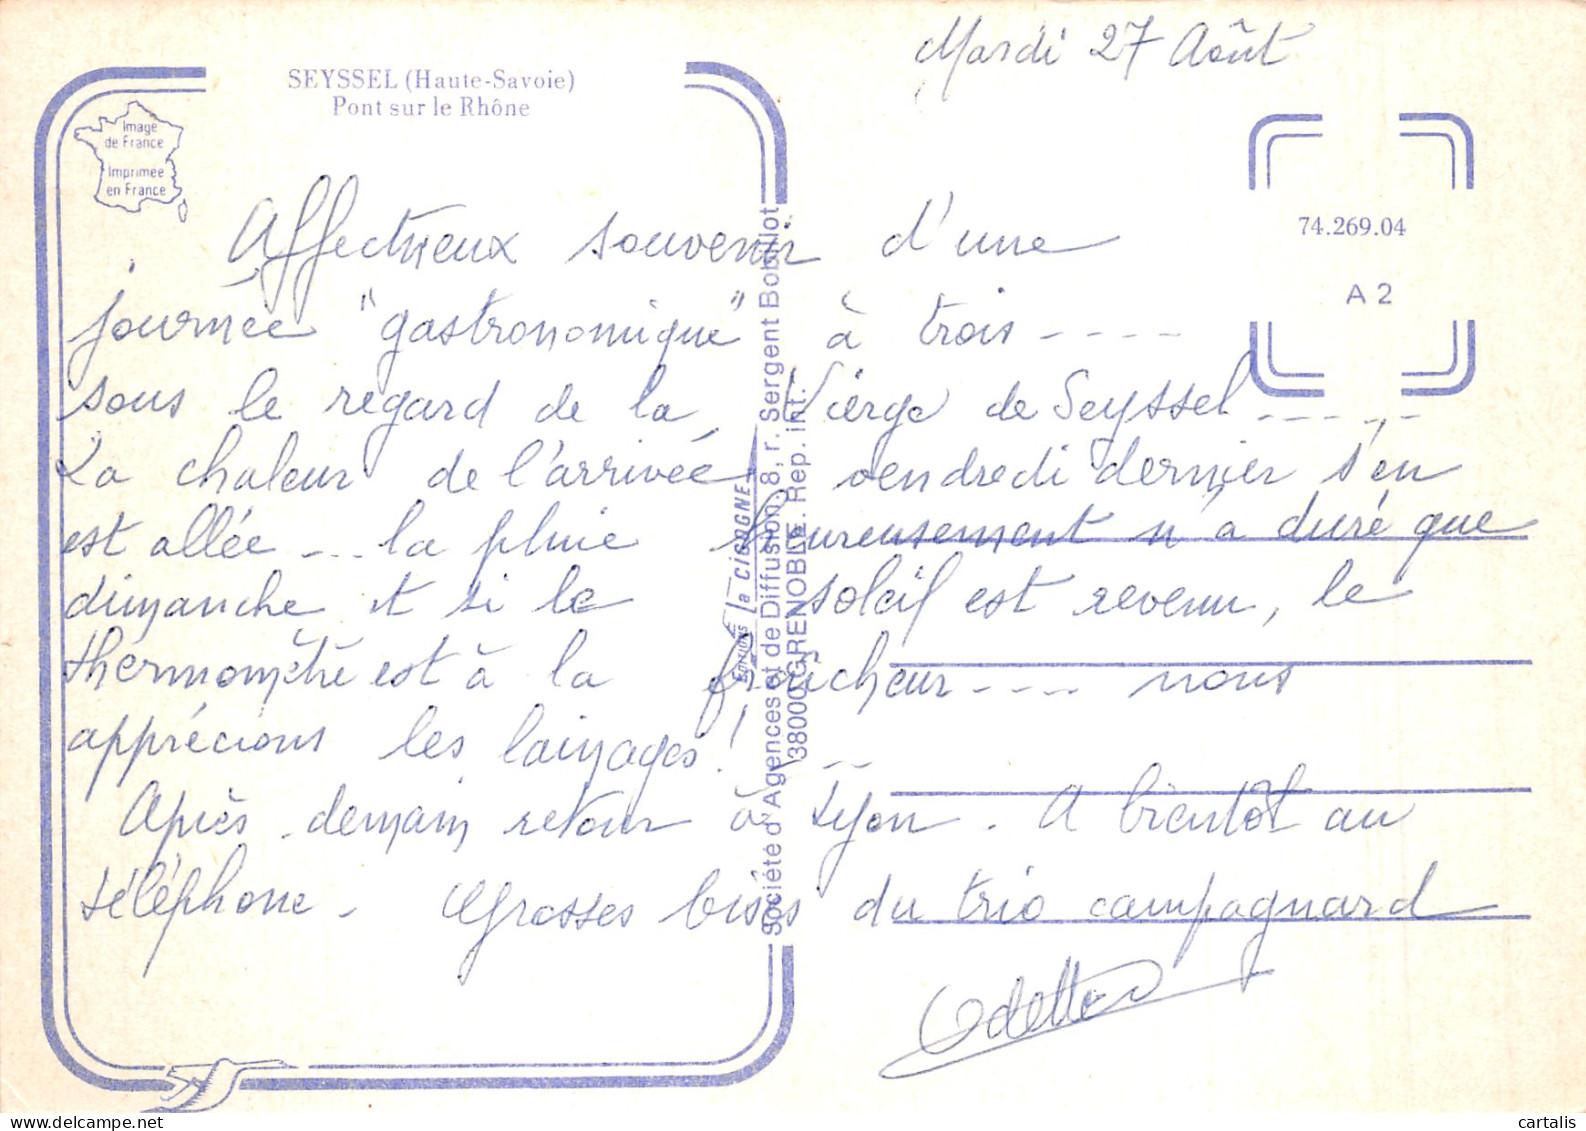 Mardi 27 Août
SEYSSEL (Haute-Savoie)
Pont sur le Rhône
Image
de France
Imprimée
en France
74.269.04
A 2
Affectueux souvenir d'une
journée "gastronomique" à trois ----
sous le regard de la Vierge de Seyssel -----
La chaleur de l'arrivée vendredi dernier s'en
est allée --- la pluie heureusement n'a duré que
dimanche et si le soleil est revenu, le
thermomètre est à la fraîcheur ---- nous
apprécions les lainages! ---
Après-demain retour à Lyon. A bientôt au
téléphone - Grosses bises du trio campagnard
Odette
EDITIONS la CIGOGNE
Société d'Agences et de Diffusion, 8, r. Sergent Bobillot
38000 GRENOBLE. Rep. int.
cartalis
delcampe.net